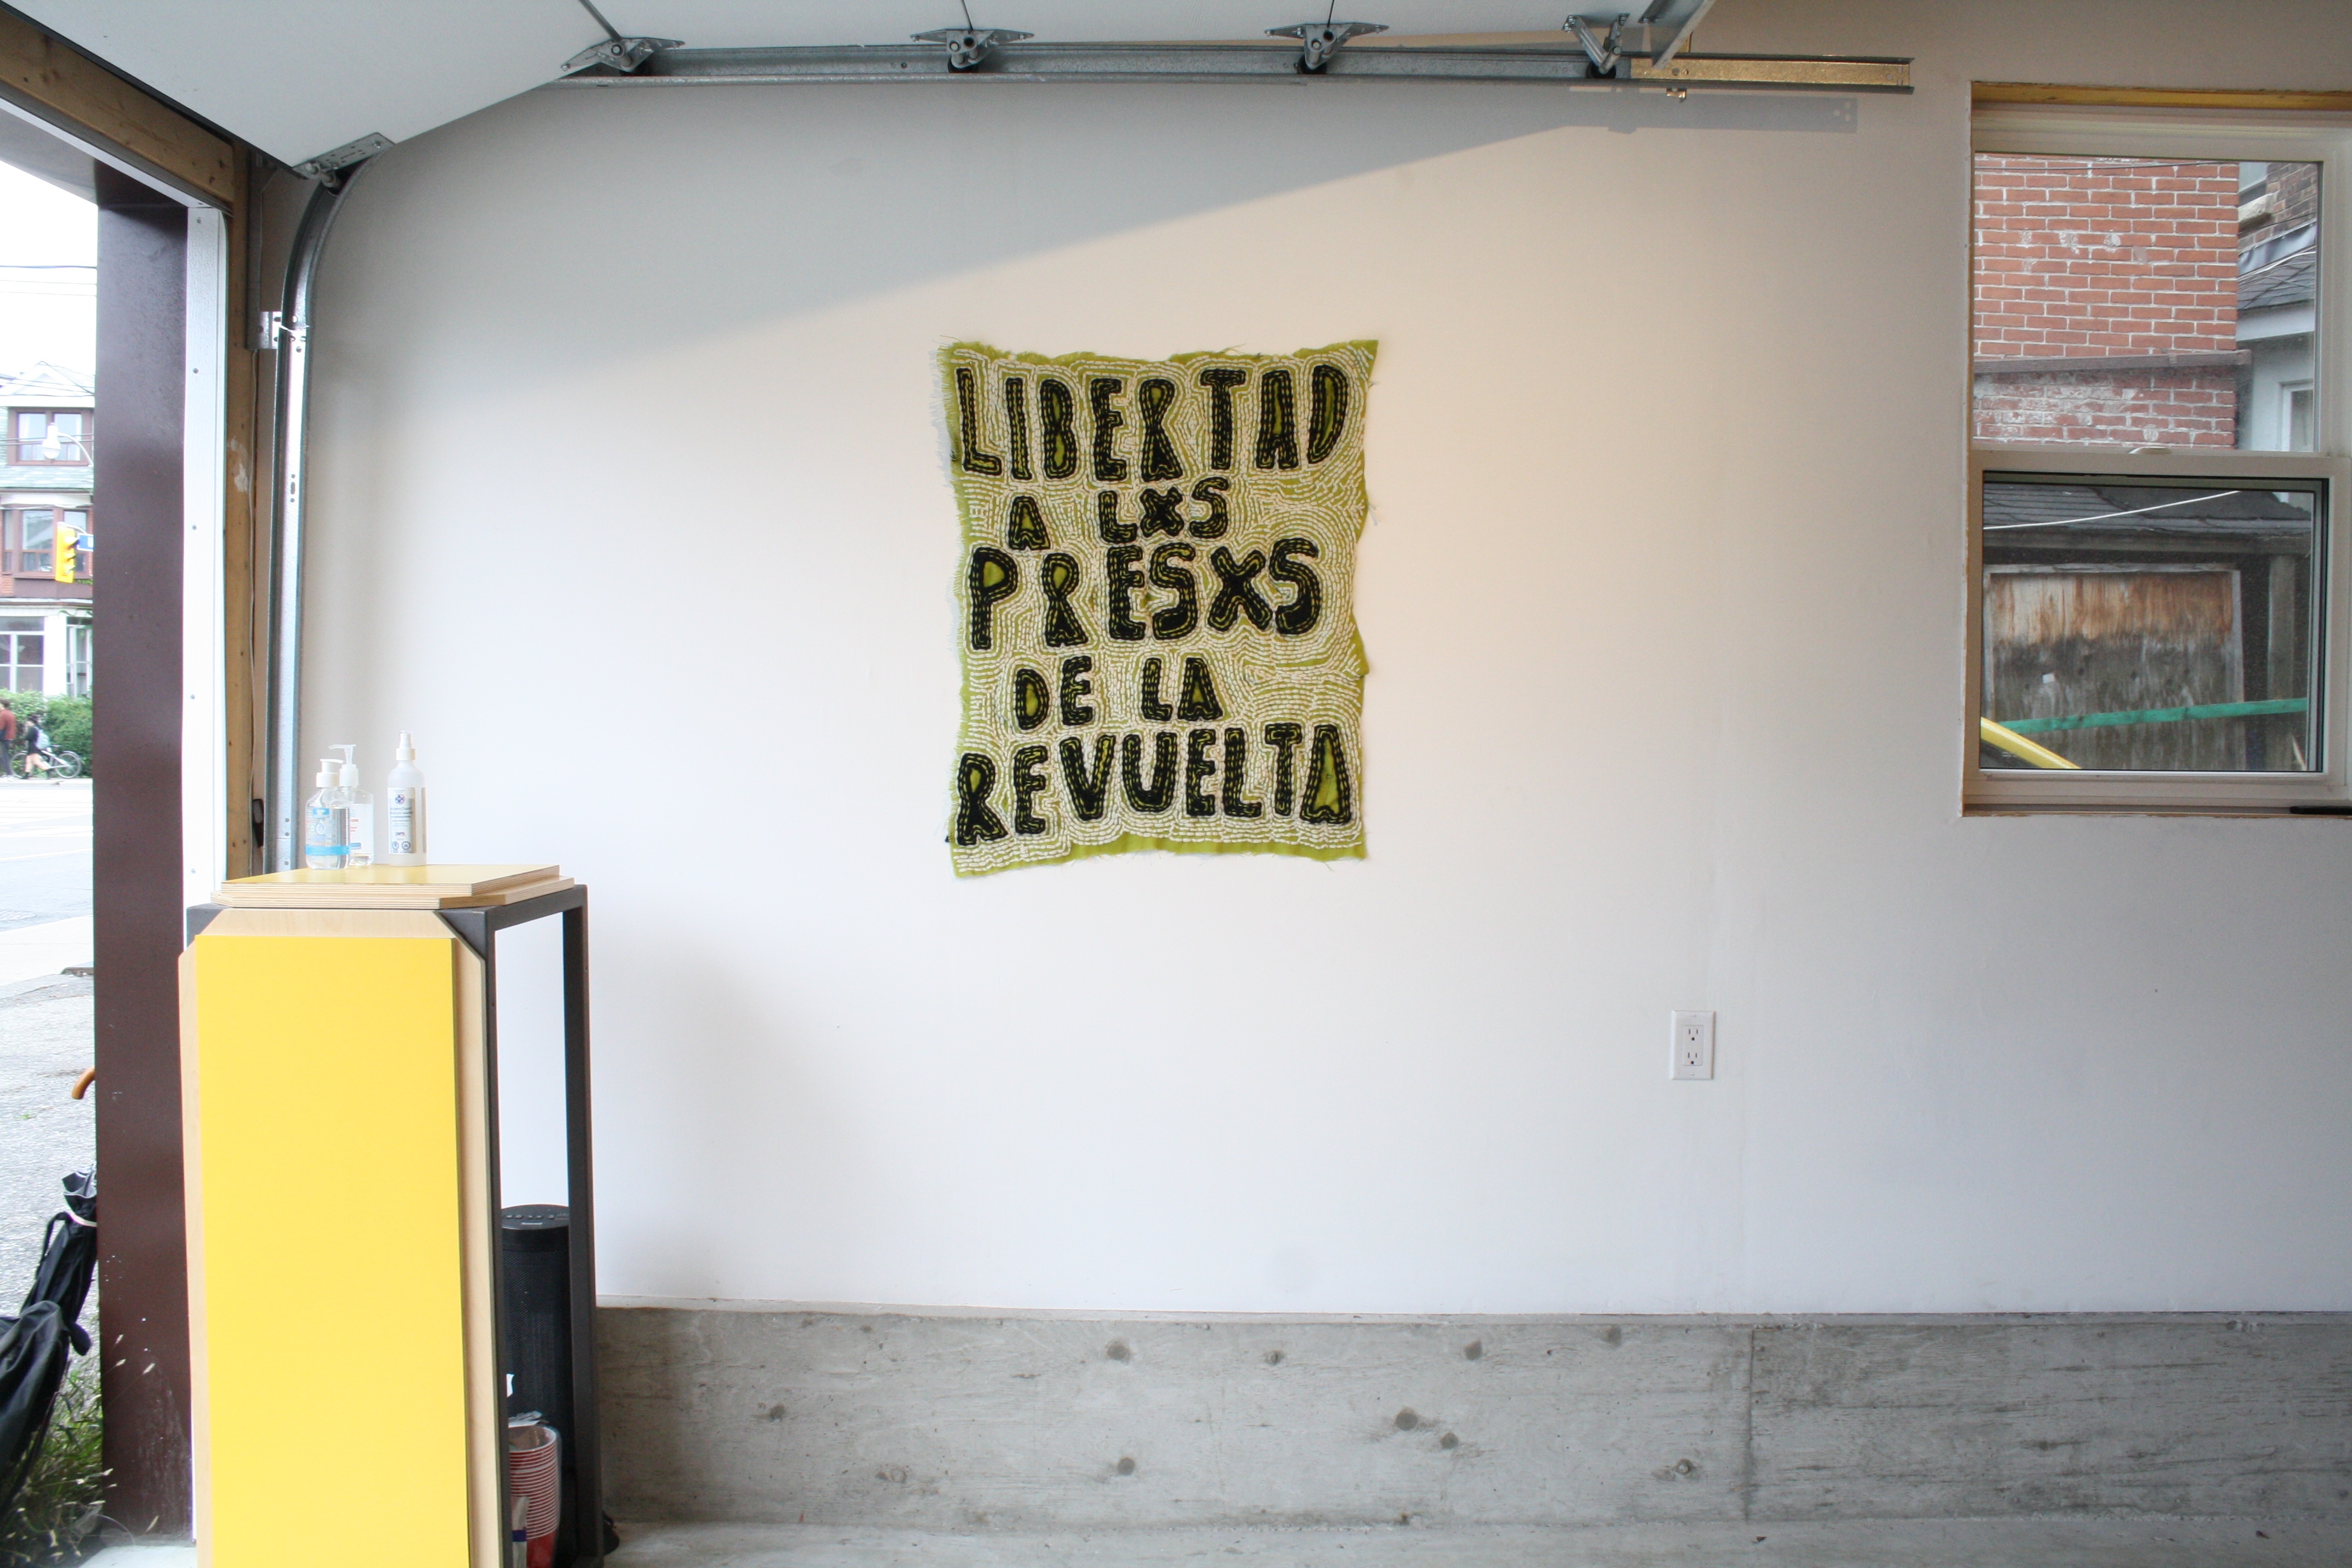 LIBERTAD
A LXS
PRESXS
DE LA
REVUELTA